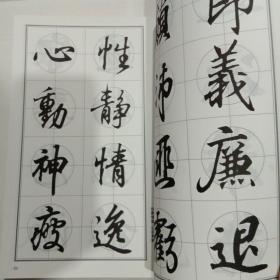 節義廉退
顛沛匪虧
性靜情逸
心動神疲